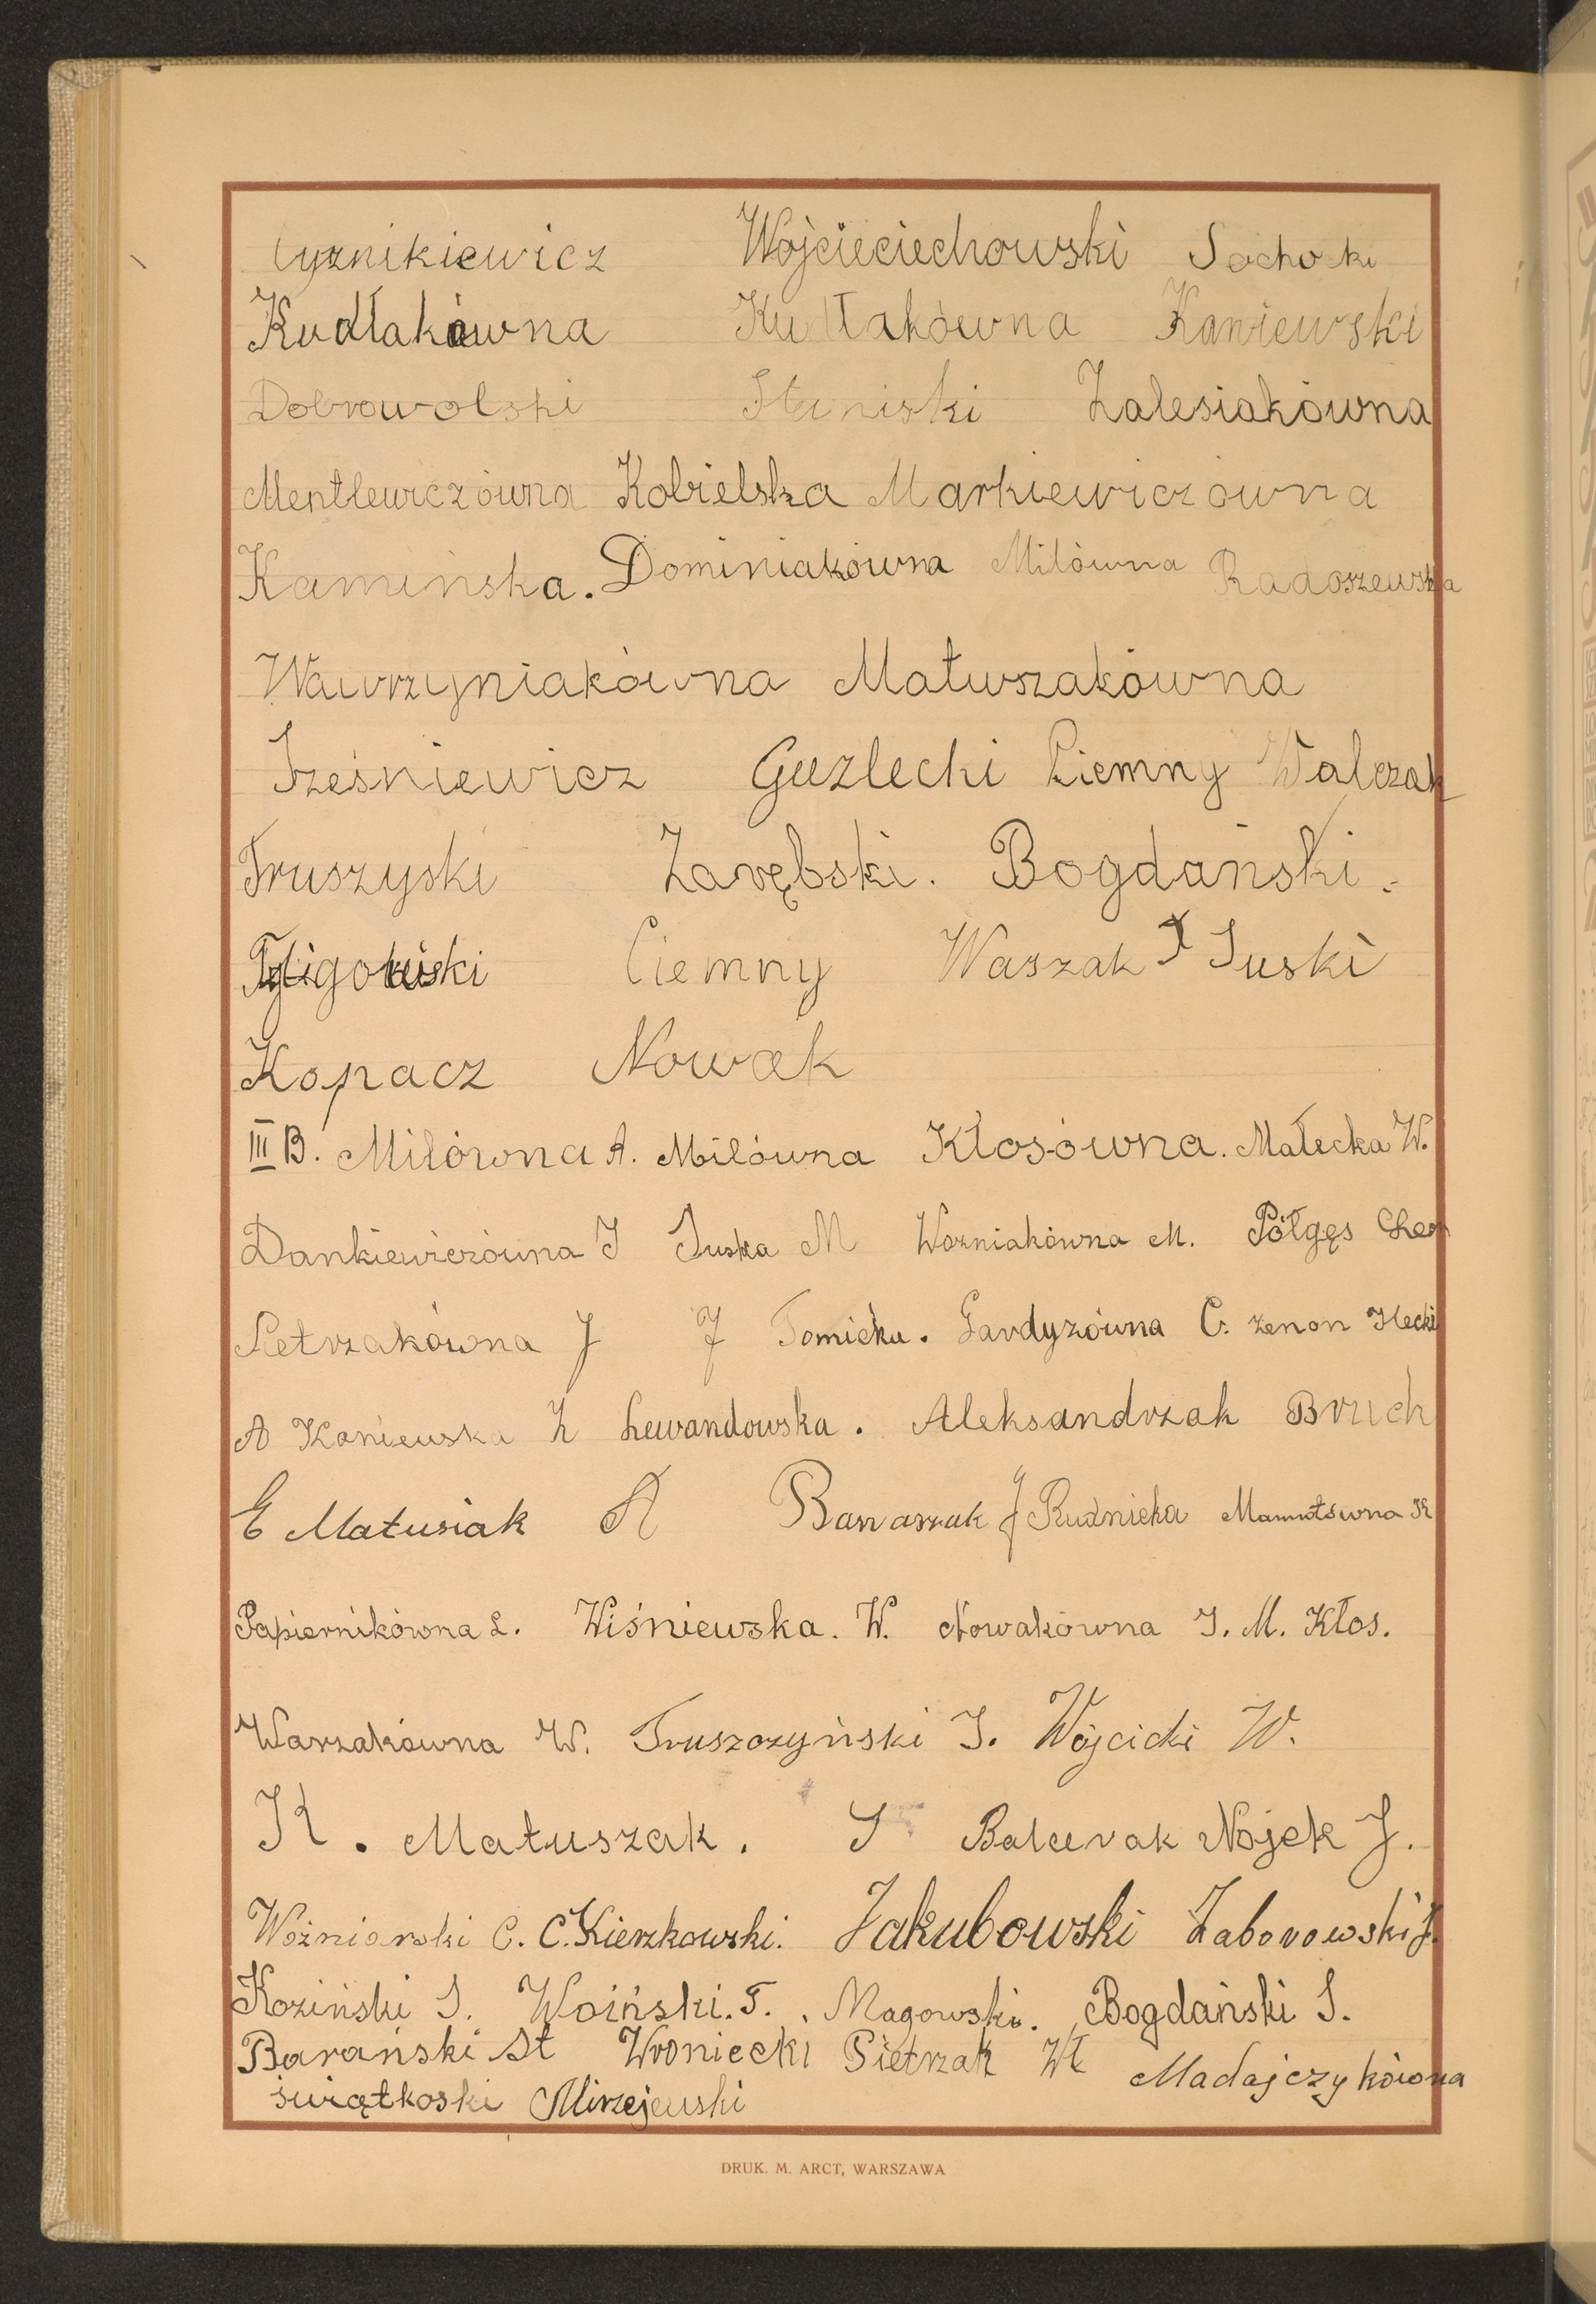 Cyznikiewicz Wojcieciechowski Sochocki
Kudłakówna Kudłakówna Kaniewski
Dobrowolski Zalesiakówna
Mentlewiczówna Kobielska Markiewiczówna
Kamińska. Dominiakówna Milówna Radoszewska
Wawrzyniakówna Matuszakówna
Trześniewicz Guzlecki Ciemny Walczak
Truszyski Zarębski. Bogdański.
Ciemny Waszak J Juski
Kopacz Nowak
III B. Milówna A. Milówna Kłosówna. Małecka W.
Dankiewiczówna J Juska M Wozniakówna M. Półgęs Chen
Pietrzakówna J J Tomicka. Gardyzówna C. Zenon Ilecki
A Kaniewska Z Lewandowska. Aleksandrzak Bruch
E Matusiak A Banaszak J Rudnicka K
Papiernikówna L. Wiśniewska. W. Nowakówna J. M. Kłos.
Warzakówna W. Truszczyński J. Wójcicki W.
K. Matuszak. S Balcerak Nojek J.
Woźniarski C. C. Kierzkowski. Jakubowski Zaborowski J.
Koziński J. Woiński. T. Magowski. Bogdański S.
Barański St Wroniecki Pietrzak Wł Madajczykówna
świątkoski Mirzejewski
DRUK. M. ARCT, WARSZAWA